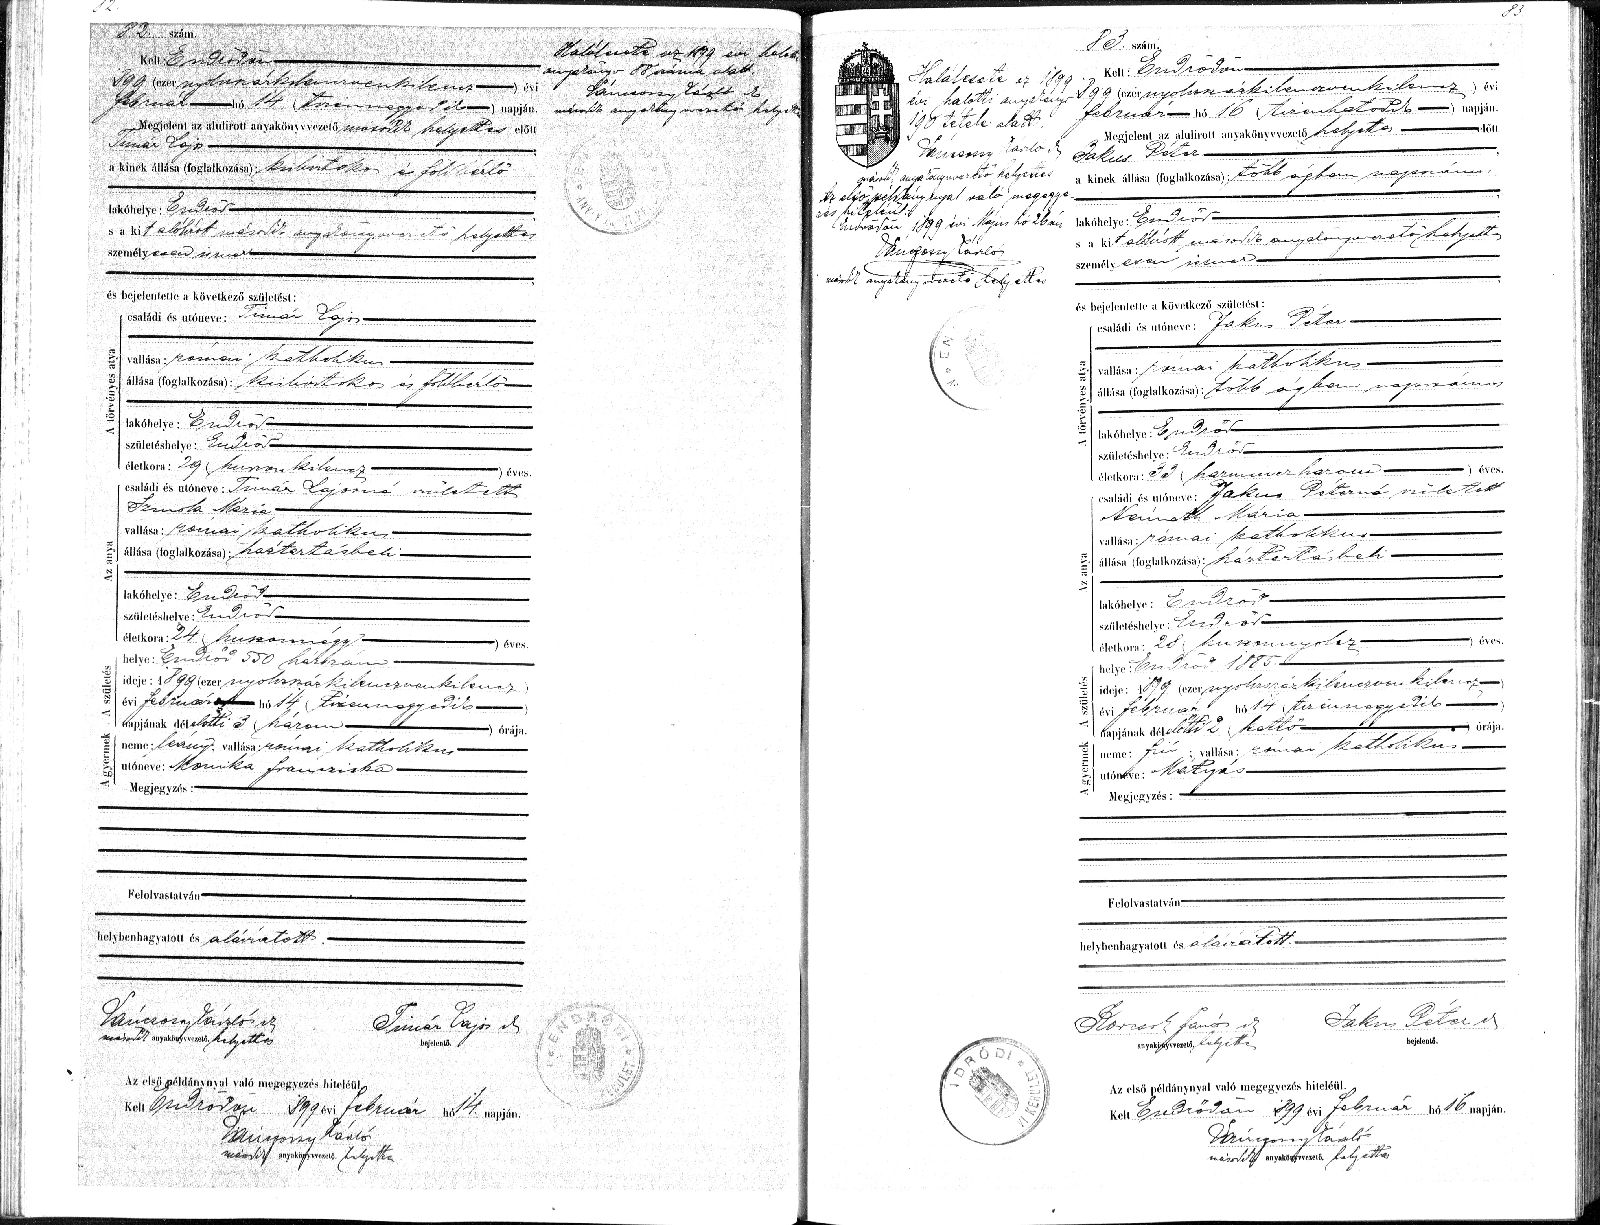 82. szám.
Kelt: Endrődön
899 (ezer nyolczszázkilenczvenkilencz) évi
február hó 14 (tizennegyedik) napján.
Megjelent az alulirott anyakönyvvezető második helyettes előtt
Timár Lajos
a kinek állása (foglalkozása): kisbirtokos és földbérlő
lakóhelye: Endrőd
s a kit alólirott második anyakönyvvezető helyettes
személyesen ismer
és bejelentette a következő születést:
A törvényes atya
családi és utóneve: Timár Lajos
vallása: római katholikus
állása (foglalkozása): kisbirtokos és földbérlő
lakóhelye: Endrőd
születéshelye: Endrőd
életkora: 29 (huszonkilencz) éves.
Az anya
családi és utóneve: Timár Lajosné született
Mária
vallása: római katholikus
állása (foglalkozása): háztartásbeli
lakóhelye: Endrőd
születéshelye: Endrőd
életkora: 24 (huszonnégy) éves.
A születés
helye: Endrőd 550 házszám
ideje: 1899 (ezer nyolczszázkilenczvenkilencz)
évi február hó 14 (tizennegyedik)
napjának délelőtti 3 (három) órája.
A gyermek
neme: leány; vallása: római katholikus
utóneve: Monika Franciska
Megjegyzés:
Felolvastatván
helybenhagyatott és aláiratott.
László sk
második anyakönyvvezető. helyettes
Timár Lajos sk
bejelentő.
Az első példánynyal való megegyezés hiteléül.
Kelt Endrődön 899 évi február hó 14. napján.
László
második anyakönyvvezető. helyettes
Halálesete az 1899 évi halotti
anyakönyv száma alatt.
László sk
második anyakönyvvezető helyettes
ENDRŐDI
KERÜLET
83
83. szám.
Kelt: Endrődön
899 (ezer nyolczszázkilenczvenkilencz) évi
február hó 16 (tizenhatodik) napján.
Megjelent az alulirott anyakönyvvezető helyettes előtt
Jakus Péter
a kinek állása (foglalkozása): több ágban napszámos
lakóhelye: Endrőd
s a kit alólirott második anyakönyvvezető helyettes
személyesen ismer
és bejelentette a következő születést:
A törvényes atya
családi és utóneve: Jakus Péter
vallása: római katholikus
állása (foglalkozása): több ágban napszámos
lakóhelye: Endrőd
születéshelye: Endrőd
életkora: 33 (harminczhárom) éves.
Az anya
családi és utóneve: Jakus Péterné született
Németh Mária
vallása: római katholikus
állása (foglalkozása): háztartásbeli
lakóhelye: Endrőd
születéshelye: Endrőd
életkora: 28 (huszonnyolcz) éves.
A születés
helye: Endrőd 1885
ideje: 1899 (ezer nyolczszázkilenczvenkilencz)
évi február hó 14 (tizennegyedik)
napjának délelőtti 2 (kettő) órája.
A gyermek
neme: fiu; vallása: római katholikus
utóneve: Mátyás
Megjegyzés:
Felolvastatván
helybenhagyatott és aláiratott.
János sk
anyakönyvvezető. helyettes
Jakus Péter sk
bejelentő.
Az első példánynyal való megegyezés hiteléül.
Kelt Endrődön 899 évi február hó 16 napján.
László
második anyakönyvvezető. helyettes
Halálesete az 1899
évi halotti anyakönyv
190 tétele alatt.
László sk
második anyakönyvvezető helyettes
Az első példánynyal való megegye-
zés hiteléül.
Endrődön 1899 évi Május hó 26án
László
második anyakönyvvezető helyettes